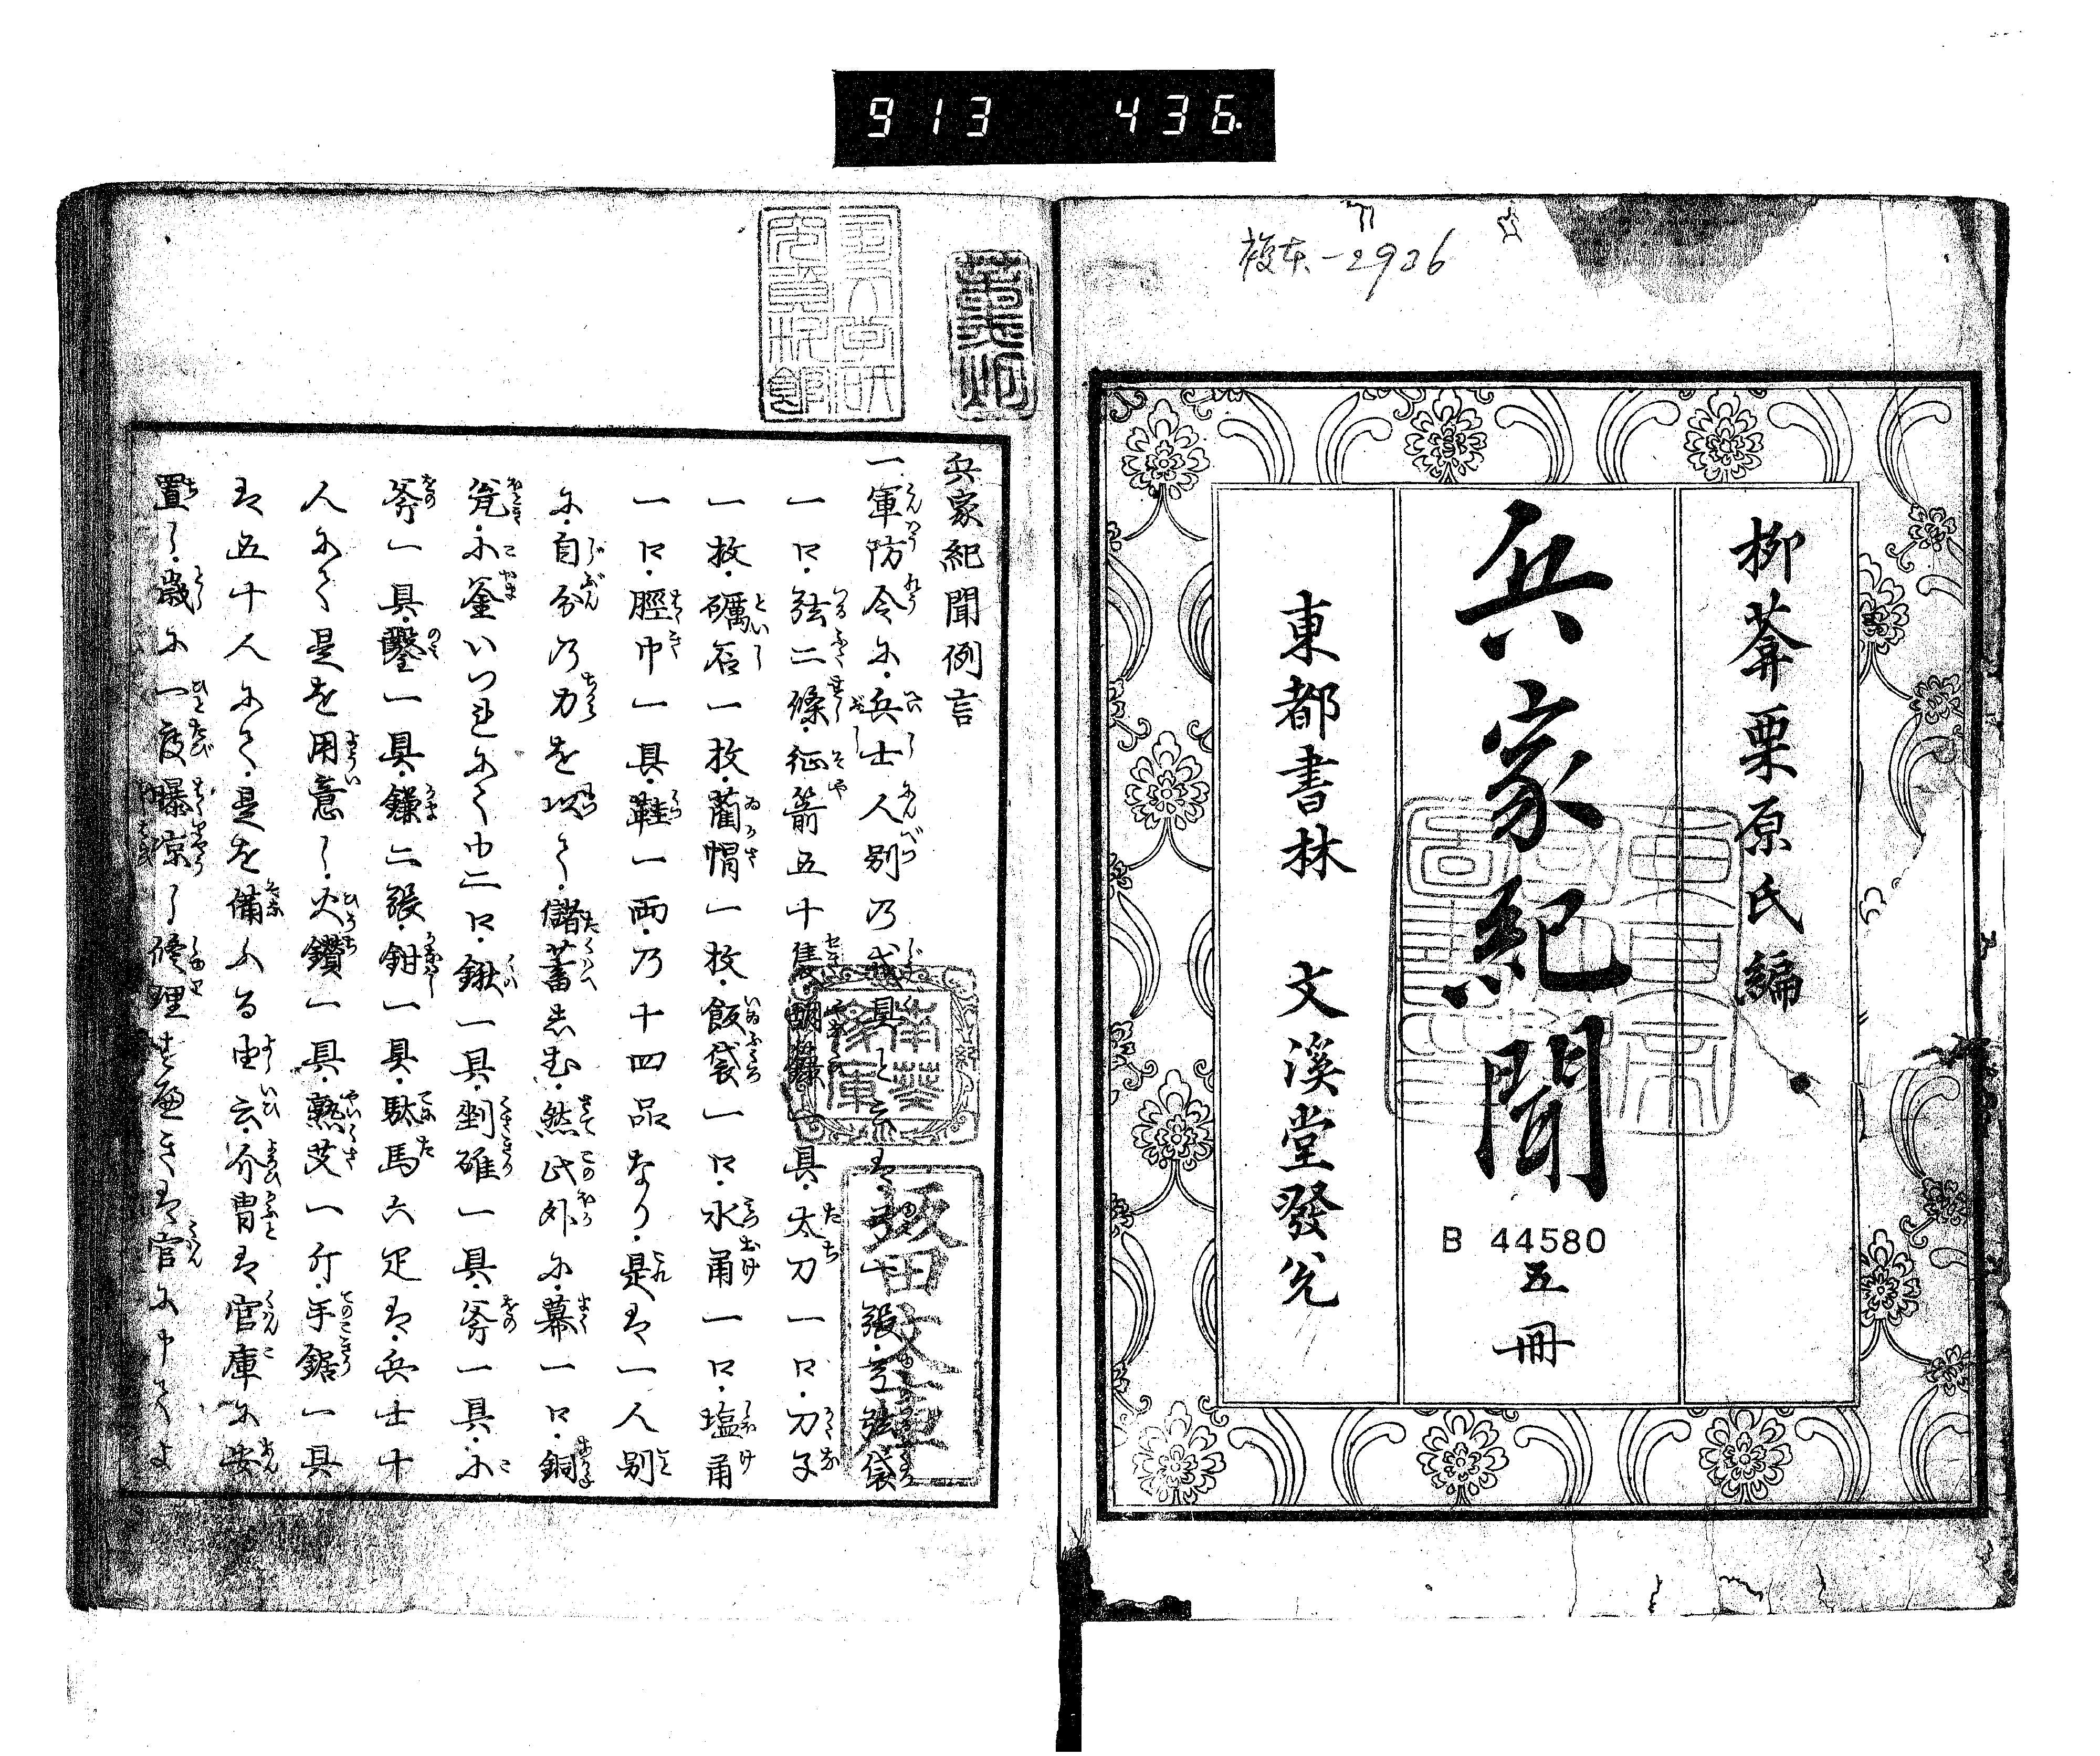 913 436.
複本-2936
柳葊栗原氏編
兵家紀聞
B 44580
五冊
東都書林 文溪堂發兌
兵家紀聞例言
一軍防令に兵士人別乃戎具と云は弓一張弓弦袋
一口弦二條征箭五十隻胡籙一具太刀一口刀子
一枚礪石一枚藺帽一枚飯袋一口水甬一口塩甬
一口脛巾一具鞋一両乃十四品なり是は一人別
に自分乃力を以て儲蓄しむ然此外に幕一口銅
瓮小釜いつれにても二口鍬一具剉碓一具斧一具小
斧一具鑿一具鎌二張鉗一具駄馬六疋は兵士十
人にて是を用意し火鑽一具熟艾一斤手鋸一具
は五十人にて是を備ふる由云介冑は官庫に安
置し歳に一度曝凉し修理すべきは官に申てよ
南葵文庫
坂田文庫